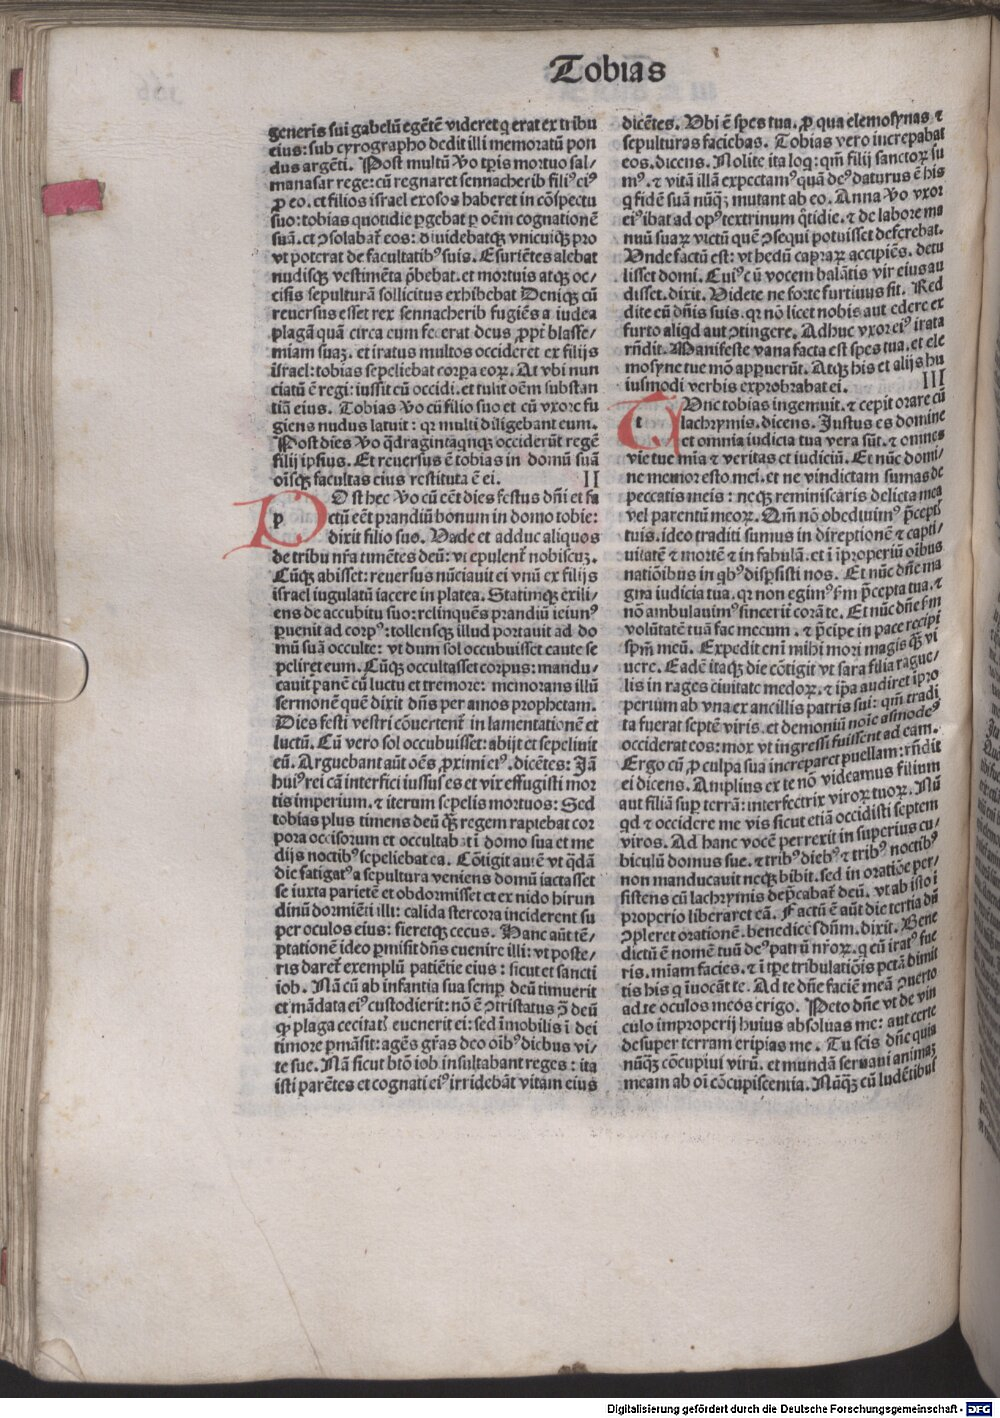 Tobias
generis sui gabelū egētē videret q erat ex tribu
eius: sub cyrographo dedit illi memoratū pon
dus argēti. Post multū ꝟo tp̄is mortuo sal/
manasar rege: cū regnaret sennacherib filiꝰ eiꝰ
ꝓ eo. et filios israel exosos haberet in cōspectu
suo: tobias quotidie ꝑgebat ꝑ oēm cognationē
suā. et ↄsolabat̄ eos: diuidebatqꝫ vnicuiqꝫ pro
vt poterat de facultatibꝰ suis. Esuriētes alebat
nudisqꝫ vestimēta p̄bebat. et mortuis atqꝫ oc/
cisis sepulturā sollicitus exhibebat Deniqꝫ cū
reuersus esset rex sennacherib fugiēs a iudea
plagā quā circa eum fecerat deus ꝓpt̄ blasfe/
miam suaꝫ. et iratus multos occideret ex filijs
israel: tobias sepeliebat corꝑa eoꝝ. At vbi nun
ciatū ē regi: iussit eū occidi. et tulit oēm substan
tiā eius. Tobias ꝟo cū filio suo et cū vxore fu
giens nudus latuit: qꝛ multi diligebant eum.
Post dies ꝟo q̄dragintaqnqꝫ occiderūt regē
filij ipsius. Et reuersus ē tobias in domū suā
oīsqꝫ facultas eius restituta ē ei. II
POst hec ꝟo cū eēt dies festus dn̄i et fa
ctū eēt prandiū bonum in domo tobie:
dixit filio suo. Vade et adduc aliquos
de tribu nr̄a timētes deū: vt epulent̄ nobiscuꝫ.
Cūqꝫ abisset: reuersus nūciauit ei vnū ex filijs
israel iugulatū iacere in platea. Statimqꝫ exili/
ens de accubitu suo: relinquēs prandiū ieiunꝰ
ꝑuenit ad corpꝰ: tollensqꝫ illud portauit ad do
mū suā occulte: vt dum sol occubuisset caute se
peliret eum. Cūqꝫ occultasset corpus: mandu/
cauit panē cū luctu et tremore: memorans illū
sermonē quē dixit dn̄s per amos prophetam.
Dies festi vestri cōuertent̄ in lamentationē et
luctū. Cū vero sol occubuisset: abijt et sepeliuit
eū. Arguebant aūt oēs ꝓximi eiꝰ. dicētes: Jā
huiꝰ rei cā interfici iussus es et vix effugisti mor
tis imperium. ⁊ iterum sepelis mortuos: Sed
tobias plus timens deū qꝫ regem rapiebat cor
pora occisorum et occultabat ī domo sua et me
dijs noctibꝰ sepeliebat ea. Cōtigit autē vt q̄dā
die fatigatꝰ a sepultura veniens domū iactasset
se iuxta parietē et obdormisset et ex nido hirun
dinū dormiēti illi: calida stercora inciderent su
per oculos eius: fieretqꝫ cecus. Hanc aūt tē/
ptationē ideo ꝑmisit dn̄s euenire illi: vt poste/
ris daret̄ exemplū patiētie eius: sicut et sancti
iob. Nā cū ab infantia sua semꝑ deū timuerit
et mādata eiꝰ custodierit: nō ē ↄtristatus ↄ̄ deū
qꝙ plaga cecitatꝭ euenerit ei: sed īmobilis ī dei
timore ꝑmāsit: agēs gr̄as deo oībꝰ diebus vi/
te sue. Nā sicut btō iob insultabant reges: ita
isti parētes et cognati eiꝰ irridebāt vitam eius
dicētes. Vbi ē spes tua. ꝓ qua elemosynas ⁊
sepulturas faciebas. Tobias vero increpabat
eos. dicens. Nolite ita loq: qm̄ filij sanctoꝝ su
mꝰ. ⁊ vitā illā expectamꝰ quā deꝰ daturus ē his
q fidē suā nūqꝫ mutant ab eo. Anna ꝟo vxor
eiꝰ ibat ad opꝰ textrinum q̄tidie. ⁊ de labore ma
nuū suaꝝ victū quē ↄsequi potuisset deferebat.
Vnde factū est: vt hedū capraꝝ accipiēs. detu
lisset domi. Cuiꝰ cū vocem balātis vir eius au
disset. dixit. Videte ne forte furtiuus sit. Red
dite eū dn̄is suis. qꝛ nō licet nobis aut edere ex
furto aliqd aut ↄtingere. Adhuc vxor eiꝰ irata
rn̄dit. Manifeste vana facta est spes tua. et ele
mosyne tue mō apꝑuerūt. Atqꝫ his et alijs hu
iusmodi verbis exprobrabat ei. III
TVnc tobias ingemuit. ⁊ cepit orare cū
lachrymis. dicens. Justus es domine
et omnia iudicia tua vera sūt. ⁊ omnes
vie tue mīa ⁊ veritas et iudiciū. Et nūc domi/
ne memor esto mei. et ne vindictam sumas de
peccatis meis: neqꝫ reminiscaris delicta mea
vel parentū meoꝝ. Qm̄ nō obediuimꝰ p̄ceptꝭ
tuis. ideo traditi sumus in direptionē ⁊ capti/
uitatē ⁊ mortē ⁊ in fabulā. et ī īproperiū oībus
natiōibus in qbꝰ disꝑsisti nos. Et nūc dn̄e ma
gna iudicia tua. qꝛ non egimꝰ ẜm p̄cepta tua. ⁊
nō ambulauimꝰ sinceriť corā te. Et nūc dn̄e ẜm
volūtatē tuā fac mecum. ⁊ p̄cipe in pace recipi
sp̄m meū. Expedit eni mihi mori magis qꝫ vi
uere. Eadē itaqꝫ die cōtigit vt sara filia rague/
lis in rages ciuitate medoꝝ. ⁊ ip̄a audiret īpro
perium ab vna ex ancillis patris sui: qm̄ tradi
ta fuerat septē viris. et demoniū noīe asmodeꝰ
occiderat eos: mox vt ingressi fuissent ad eam.
Ergo cū ꝓ culpa sua increparet puellam: rn̄dit
ei dicens. Amplius ex te nō videamus filium
aut filiā suꝑ terrā: interfectrix viroꝝ tuoꝝ. Nū
qd ⁊ occidere me vis sicut etiā occidisti septem
viros. Ad hanc vocē perrexit in superius cu/
biculū domus sue. ⁊ tribꝰ diebꝰ ⁊ tribꝰ noctibꝰ
non manducauit neqꝫ bibit. sed in oratiōe per/
sistens cū lachrymis dep̄cabat̄ deū. vt ab isto ī
properio liberaret eā. Factū ē aūt die tertia dū
ↄpleret orationē. benedicēs dn̄m. dixit. Bene
dictū ē nomē tuū deꝰ patrū nr̄oꝝ. q cū iratꝰ fue
ris. mīam facies. ⁊ ī tꝑe tribulatiōis pctā dimit
tis his q īuocāt te. Ad te dn̄e faciē meā ↄuerto
ad te oculos meos erigo. Peto dn̄e vt de vin
culo improperij huius absoluas me: aut certe
desuper terram eripias me. Tu scis dn̄e quia
nūqꝫ cōcupiui virū. et mundā seruaui animaꝫ
meam ab oī cōcupiscentia. Nūqꝫ cū ludētibus
Digitalisierung gefördert durch die Deutsche Forschungsgemeinschaft - DFG